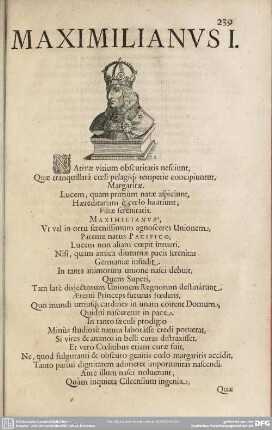 239
MAXIMILIANVS I.
NAtivæ vitium obscuritatis nesciunt,
Quæ tranquillatâ cœli pelagiq; temperie concipiuntur,
Margaritæ.
Lucem, quam primùm natæ aspiciunt,
Hæreditariam è cœlo hauriunt,
Filiæ serenitatis.
MAXIMILIANVS,
Vt vel in ortu serenissimum agnosceres Unionem,
Parente natus PACIFICO,
Lucem non aliam cœpit intueri,
Nisi, quam amica diuturnæ pacis serenitas
Germaniæ infudit.
In tanta animorum unione nasci debuit,
Quem Superi,
Tam latè disjectorum Unionem Regnorum destinârunt,
Æterni Principis futurus fœderis,
Quo mundi utriusq; cardines in unam coirent Domum,
Quidni nasceretur in pace.
In tanto sæculi prodigio
Minùs studiosè natura laborâsse credi potuerat,
Si vires & animos in belli curas distraxisset.
Et verò Cœlitibus etiam curæ fuit,
Ne, quod fulguranti & obscuro genitis cœlo margaritis accidit,
Tanto partui dignitatem adimeret importunitas nascendi.
Ante illum nasci noluerunt,
Quàm inquieta Cilensium ingenia,
Quæ